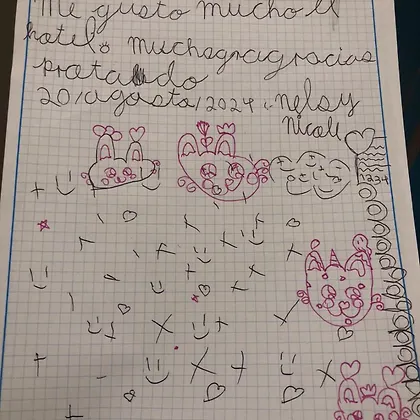 me gusto mucho el
hotel. muchasgragracias
20/agosto/2024. nelsy
Nicoll
1234